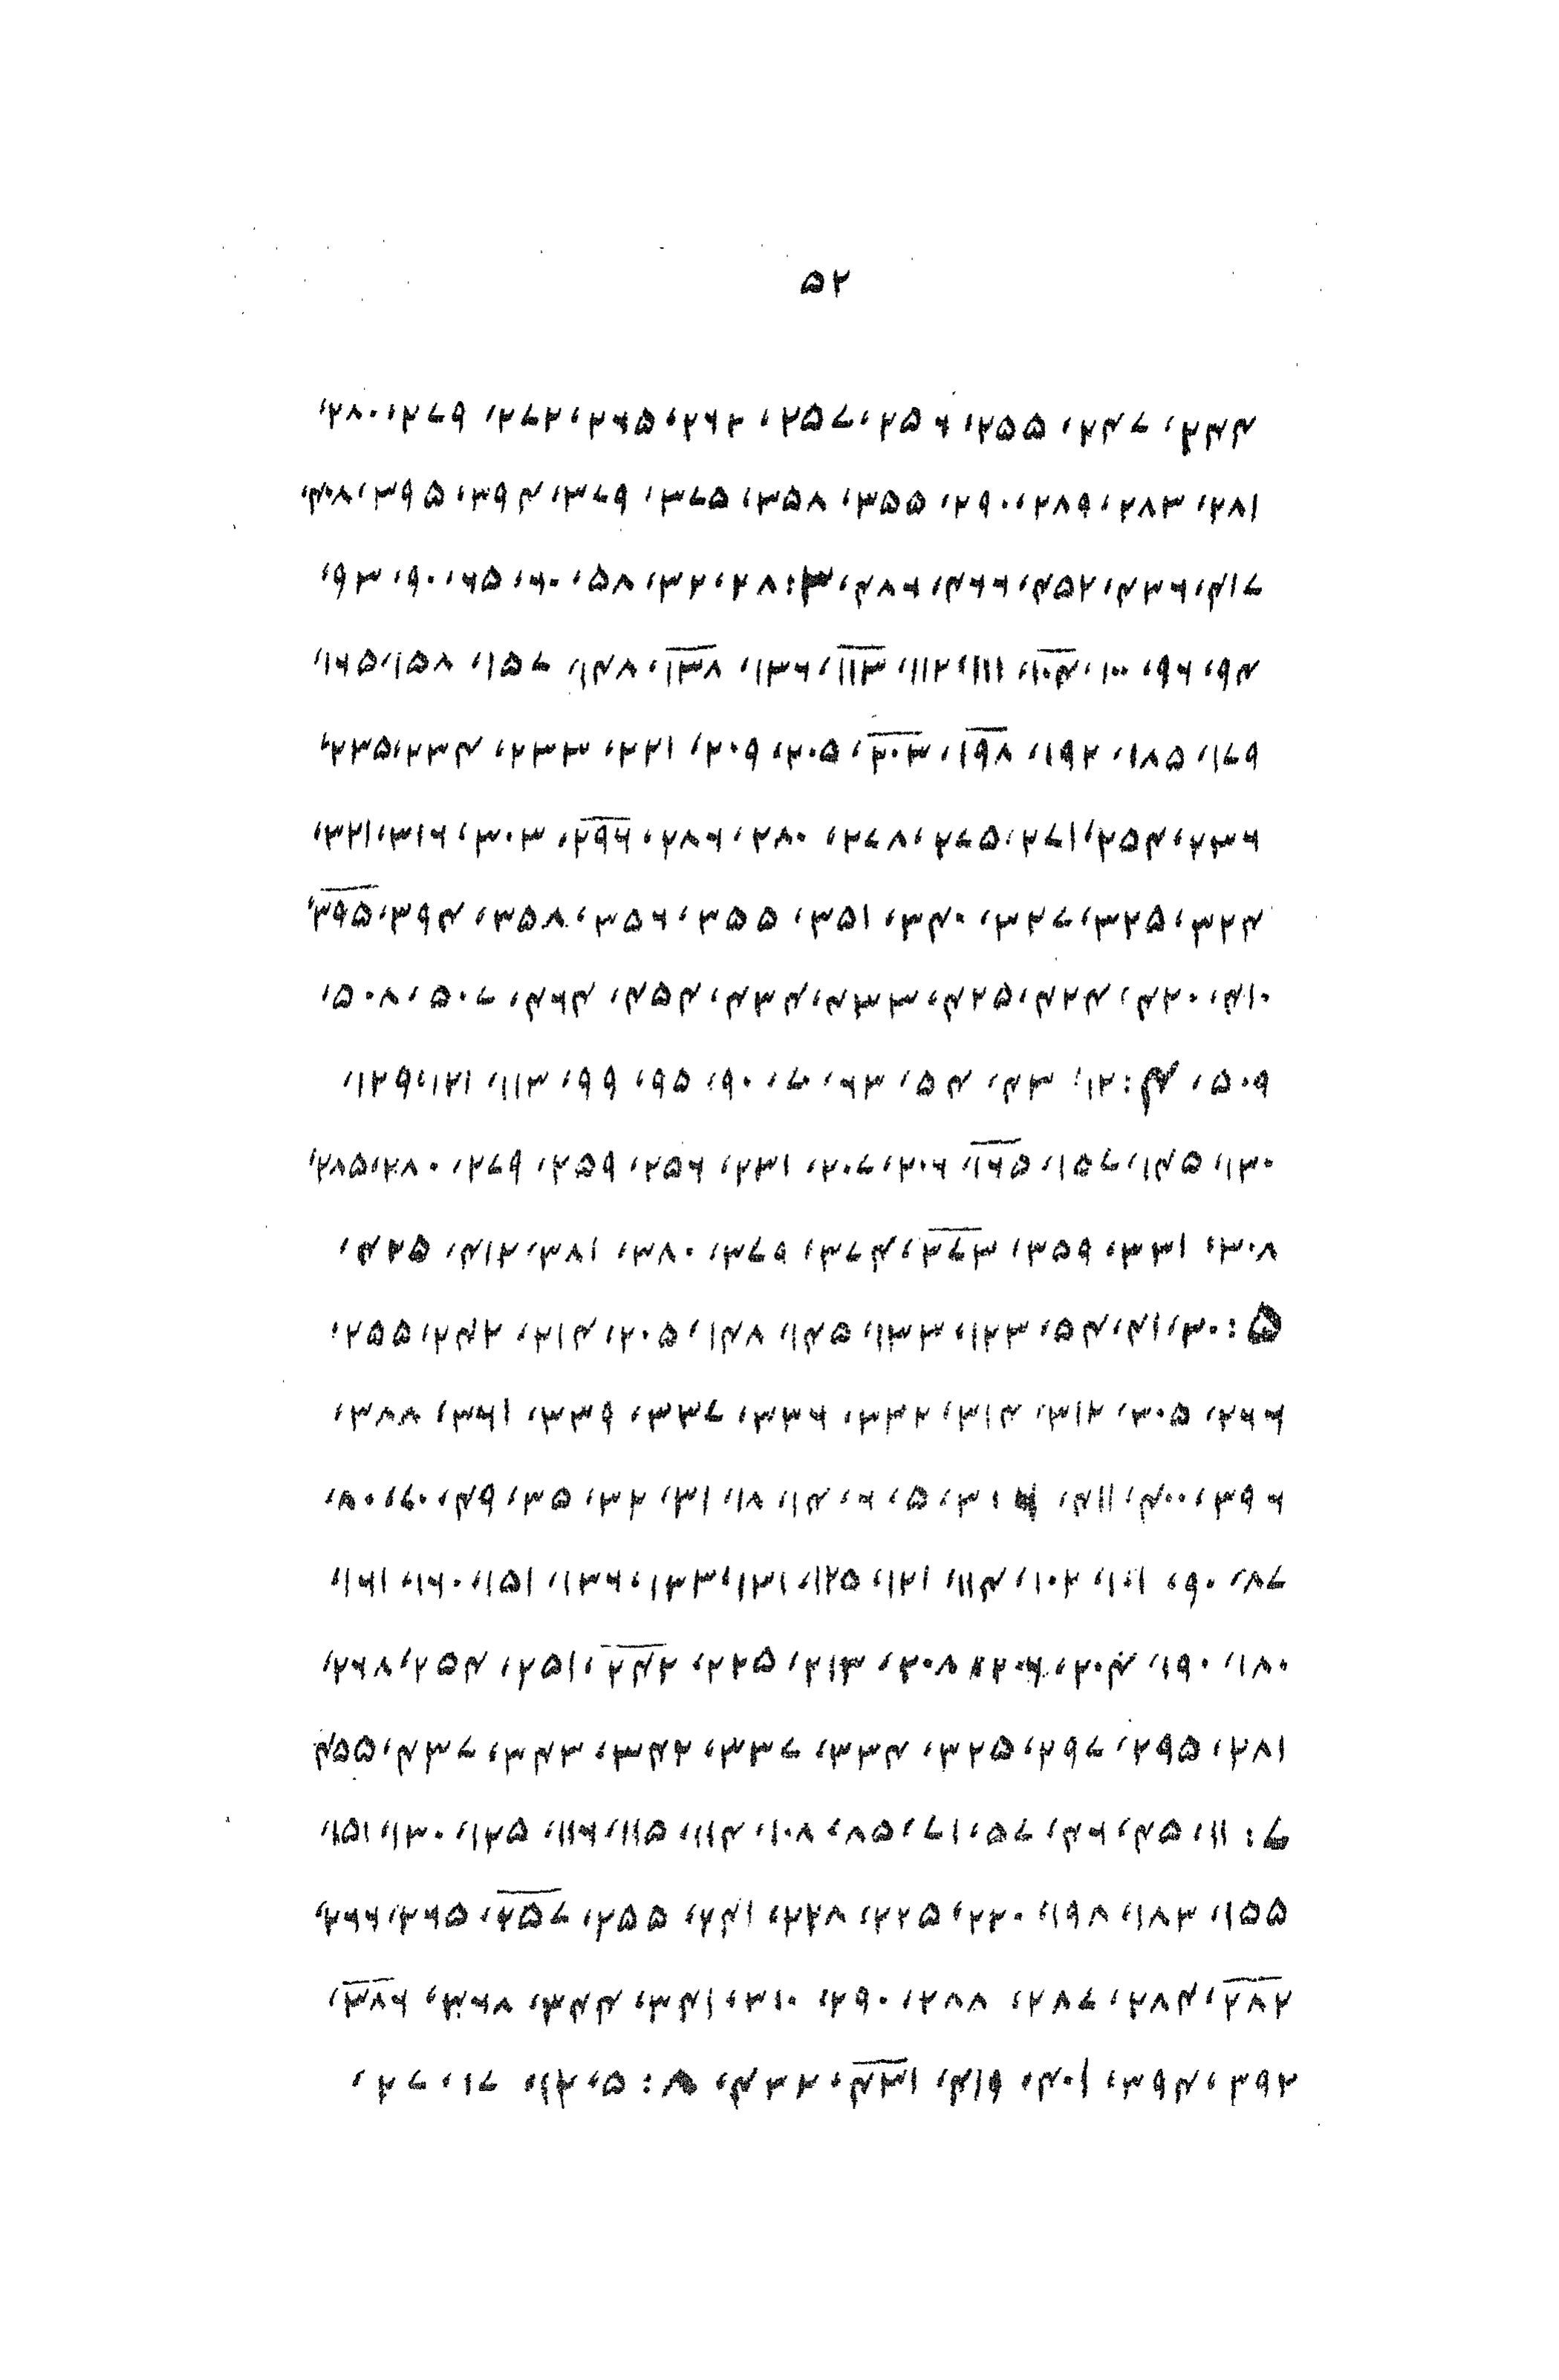 ۵۲
۲۴۴، ۲۴۷، ۲۵۵، ۲۵۶، ۲۵۷، ۲۶۲، ۲۶۵، ۲۷۲، ۲۷۹، ۲۸۰،
۲۸۱، ۲۸۳، ۲۸۹، ۲۹۰، ۳۵۵، ۳۵۸، ۳۷۵، ۳۷۹، ۳۹۴، ۳۹۵، ۴۰۸،
۴۱۷، ۴۳۶، ۴۵۲، ۴۶۶، ۴۸۶، ۳: ۲۸، ۳۲، ۵۸، ۶۰، ۶۵، ۹۰، ۹۳،
۹۴، ۹۶، ۱۰۰، ۱۰۴، ۱۱۱، ۱۱۲، ۱۱۳، ۱۳۶، ۱۳۸، ۱۴۸، ۱۵۷، ۱۵۸، ۱۶۵،
۱۷۹، ۱۸۵، ۱۹۲، ۱۹۸، ۲۰۳، ۲۰۵، ۲۰۹، ۲۲۱، ۲۳۳، ۲۳۴، ۲۳۵،
۲۳۶، ۲۵۴، ۲۷۱، ۲۷۵، ۲۷۸، ۲۸۰، ۲۸۶، ۲۹۶، ۳۰۳، ۳۱۶، ۳۲۱،
۳۲۴، ۳۲۵، ۳۲۷، ۳۴۰، ۳۵۱، ۳۵۵، ۳۵۶، ۳۵۸، ۳۹۴، ۳۹۵،
۴۱۰، ۴۲۰، ۴۲۴، ۴۲۵، ۴۳۳، ۴۳۴، ۴۵۴، ۴۶۴، ۵۰۷، ۵۰۸،
۵۰۹، ۴: ۱۲، ۴۳، ۵۴، ۶۳، ۷۰، ۹۰، ۹۵، ۹۹، ۱۱۳، ۱۲۱، ۱۲۹،
۱۳۰، ۱۴۵، ۱۵۷، ۱۶۵، ۲۰۶، ۲۰۷، ۲۳۱، ۲۵۶، ۲۵۹، ۲۷۹، ۲۸۰، ۲۸۵،
۳۰۸، ۳۳۱، ۳۵۹، ۳۷۳، ۳۷۴، ۳۷۹، ۳۸۰، ۳۸۱، ۴۱۲، ۴۲۵،
۵: ۳۰، ۴۱، ۵۴، ۱۲۳، ۱۳۳، ۱۴۵، ۱۴۸، ۲۰۵، ۲۱۴، ۲۴۲، ۲۵۵،
۲۶۶، ۳۰۵، ۳۱۲، ۳۱۴، ۳۳۲، ۳۳۶، ۳۳۷، ۳۳۹، ۳۶۱، ۳۸۸،
۳۹۶، ۴۰۰، ۴۱۱، ۶: ۳، ۵، ۶، ۱۴، ۱۸، ۳۱، ۳۲، ۳۵، ۴۹،
۸۷، ۹۰، ۱۰۱، ۱۰۲، ۱۱۴، ۱۲۱، ۱۲۵، ۱۳۱، ۱۳۳، ۱۳۶، ۱۵۱، ۱۶۰، ۱۶۱،
۱۸۰، ۱۹۰، ۲۰۴، ۲۰۶، ۲۰۸، ۲۱۳، ۲۲۵، ۲۴۲، ۲۵۱، ۲۵۴، ۲۶۸،
۲۸۱، ۲۹۵، ۲۹۷، ۳۲۵، ۳۳۴، ۳۳۷، ۳۴۲، ۳۴۳، ۴۳۷، ۴۵۵
۷: ۱۱، ۴۵، ۴۶، ۵۷، ۷۱، ۸۵، ۱۰۸، ۱۱۴، ۱۱۵، ۱۱۶، ۱۲۵، ۱۳۰، ۱۵۱،
۱۵۵، ۱۸۳، ۱۹۸، ۲۲۰، ۲۲۵، ۲۲۸، ۲۴۱، ۲۵۵، ۲۵۷، ۲۶۵، ۲۶۶،
۲۸۲، ۲۸۴، ۲۸۷، ۲۸۸، ۲۹۰، ۳۱۰، ۳۴۱، ۳۴۴، ۳۶۸، ۳۸۶،
۳۹۲، ۳۹۴، ۴۰۱، ۴۱۹، ۴۳۱، ۴۳۲، ۸: ۵، ۱۲، ۱۷، ۲۷،